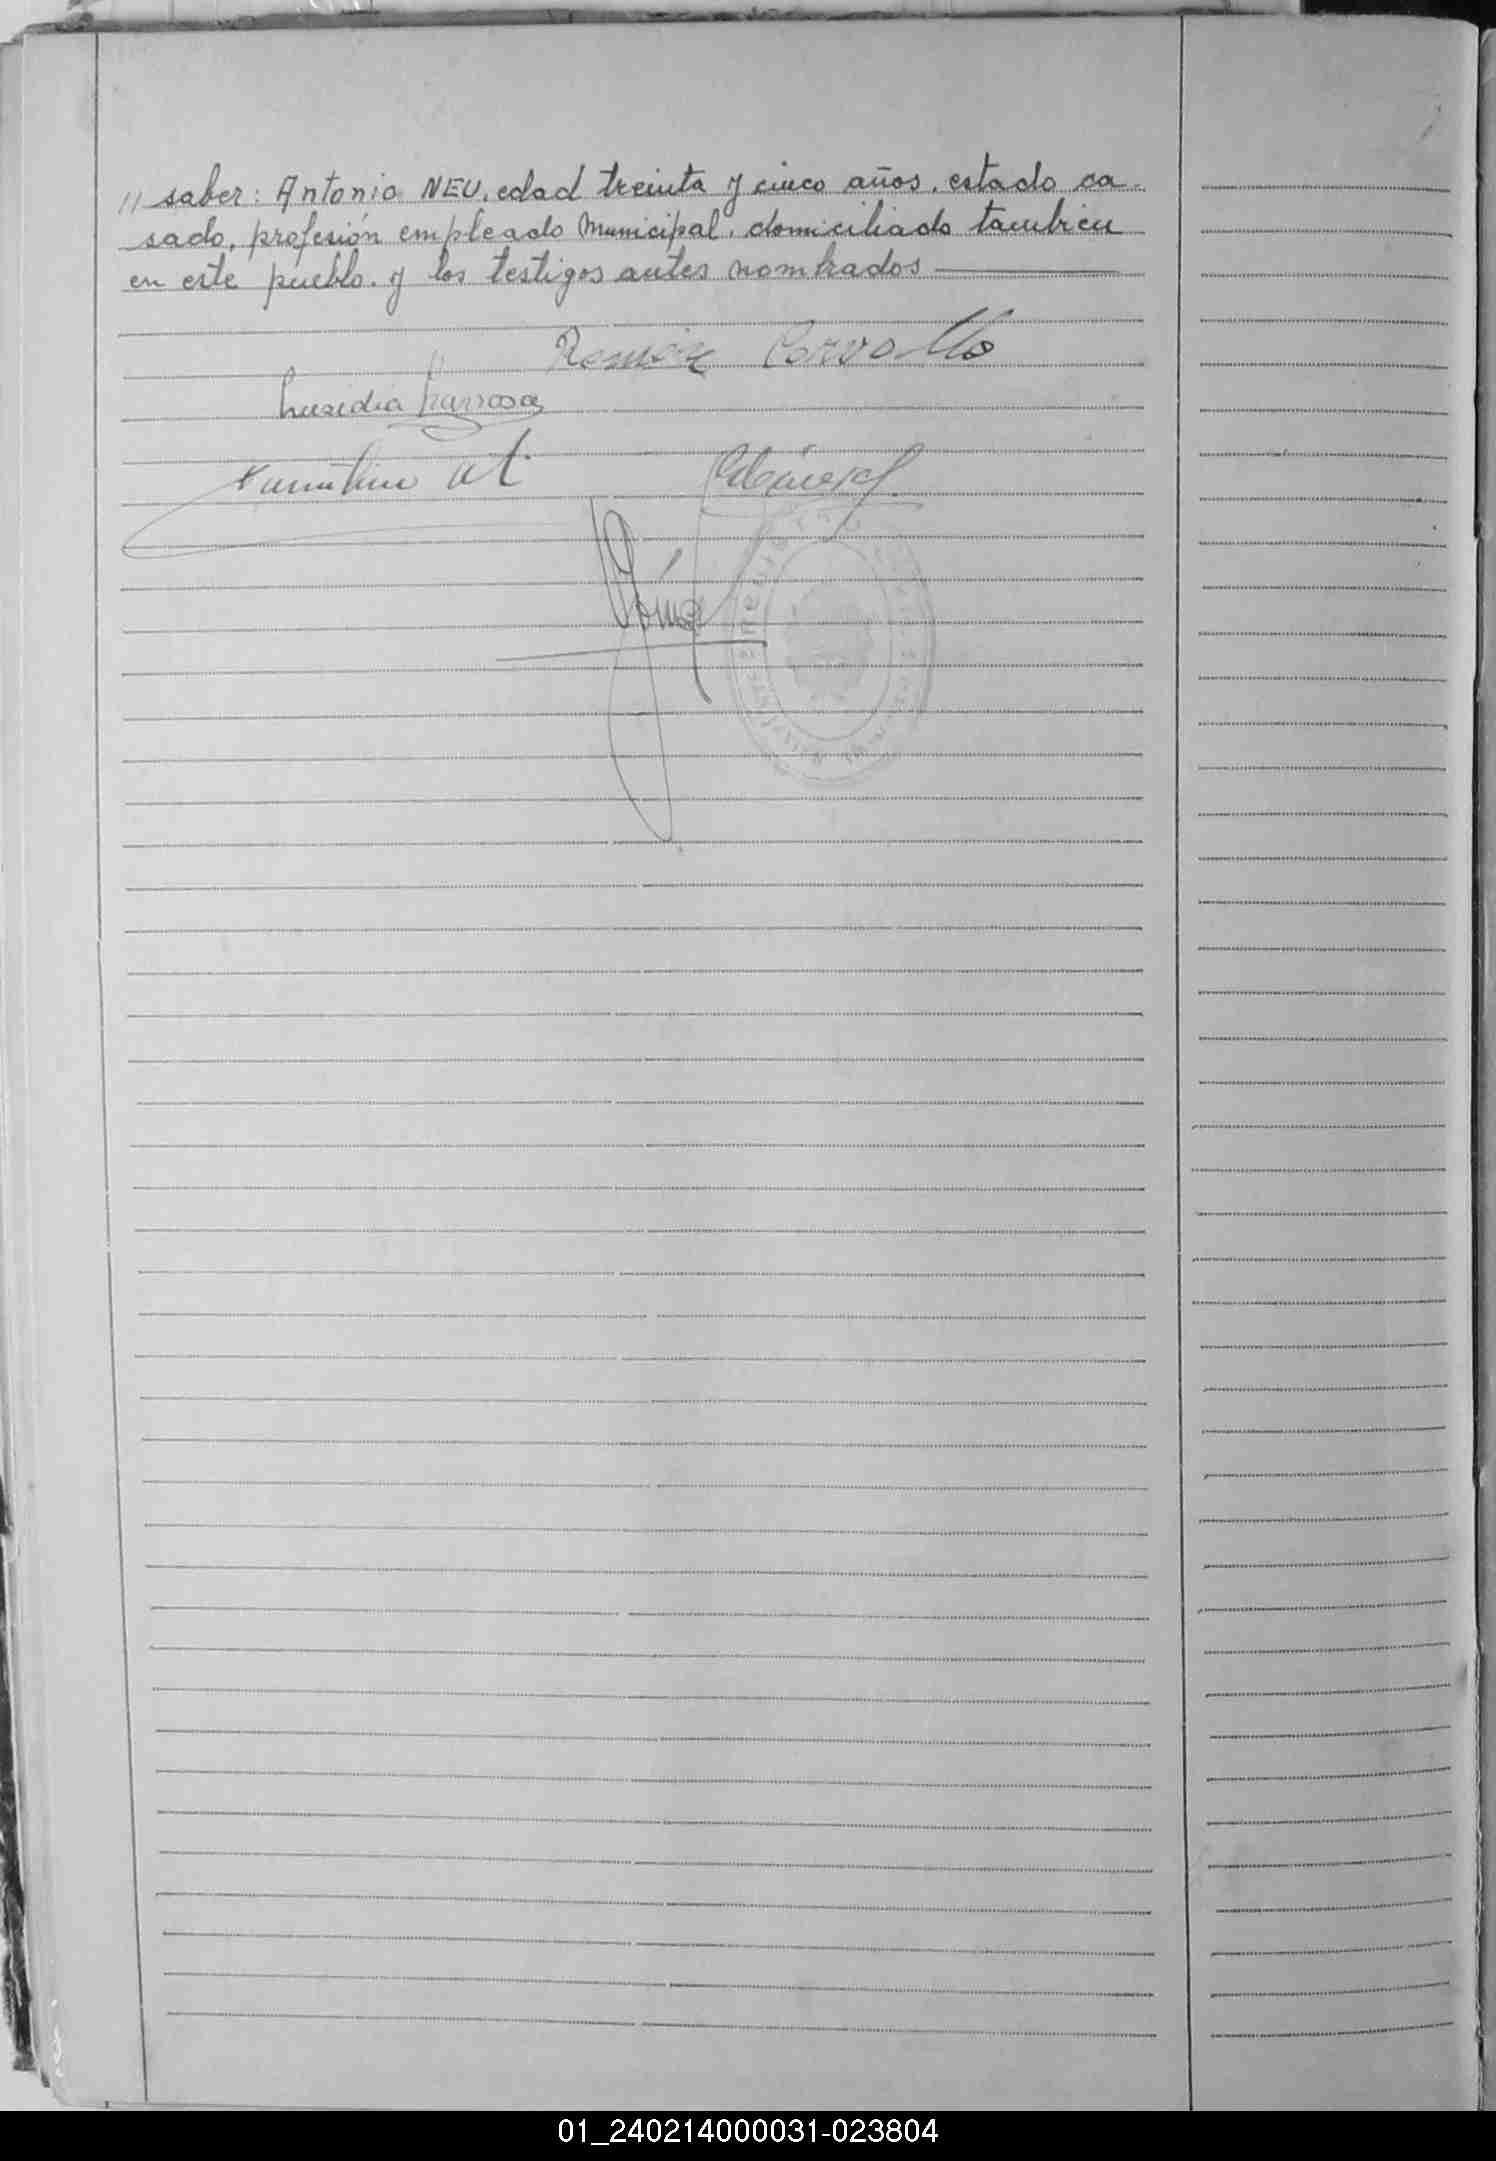 // saber: Antonio NEU, edad treinta y cinco años, estado ca-
sado, profesión empleado Municipal, domiciliado también
en este pueblo. y los testigos antes nombrados
Ramón Carvallo
Lusidia Barrosa
01_240214000031-023804